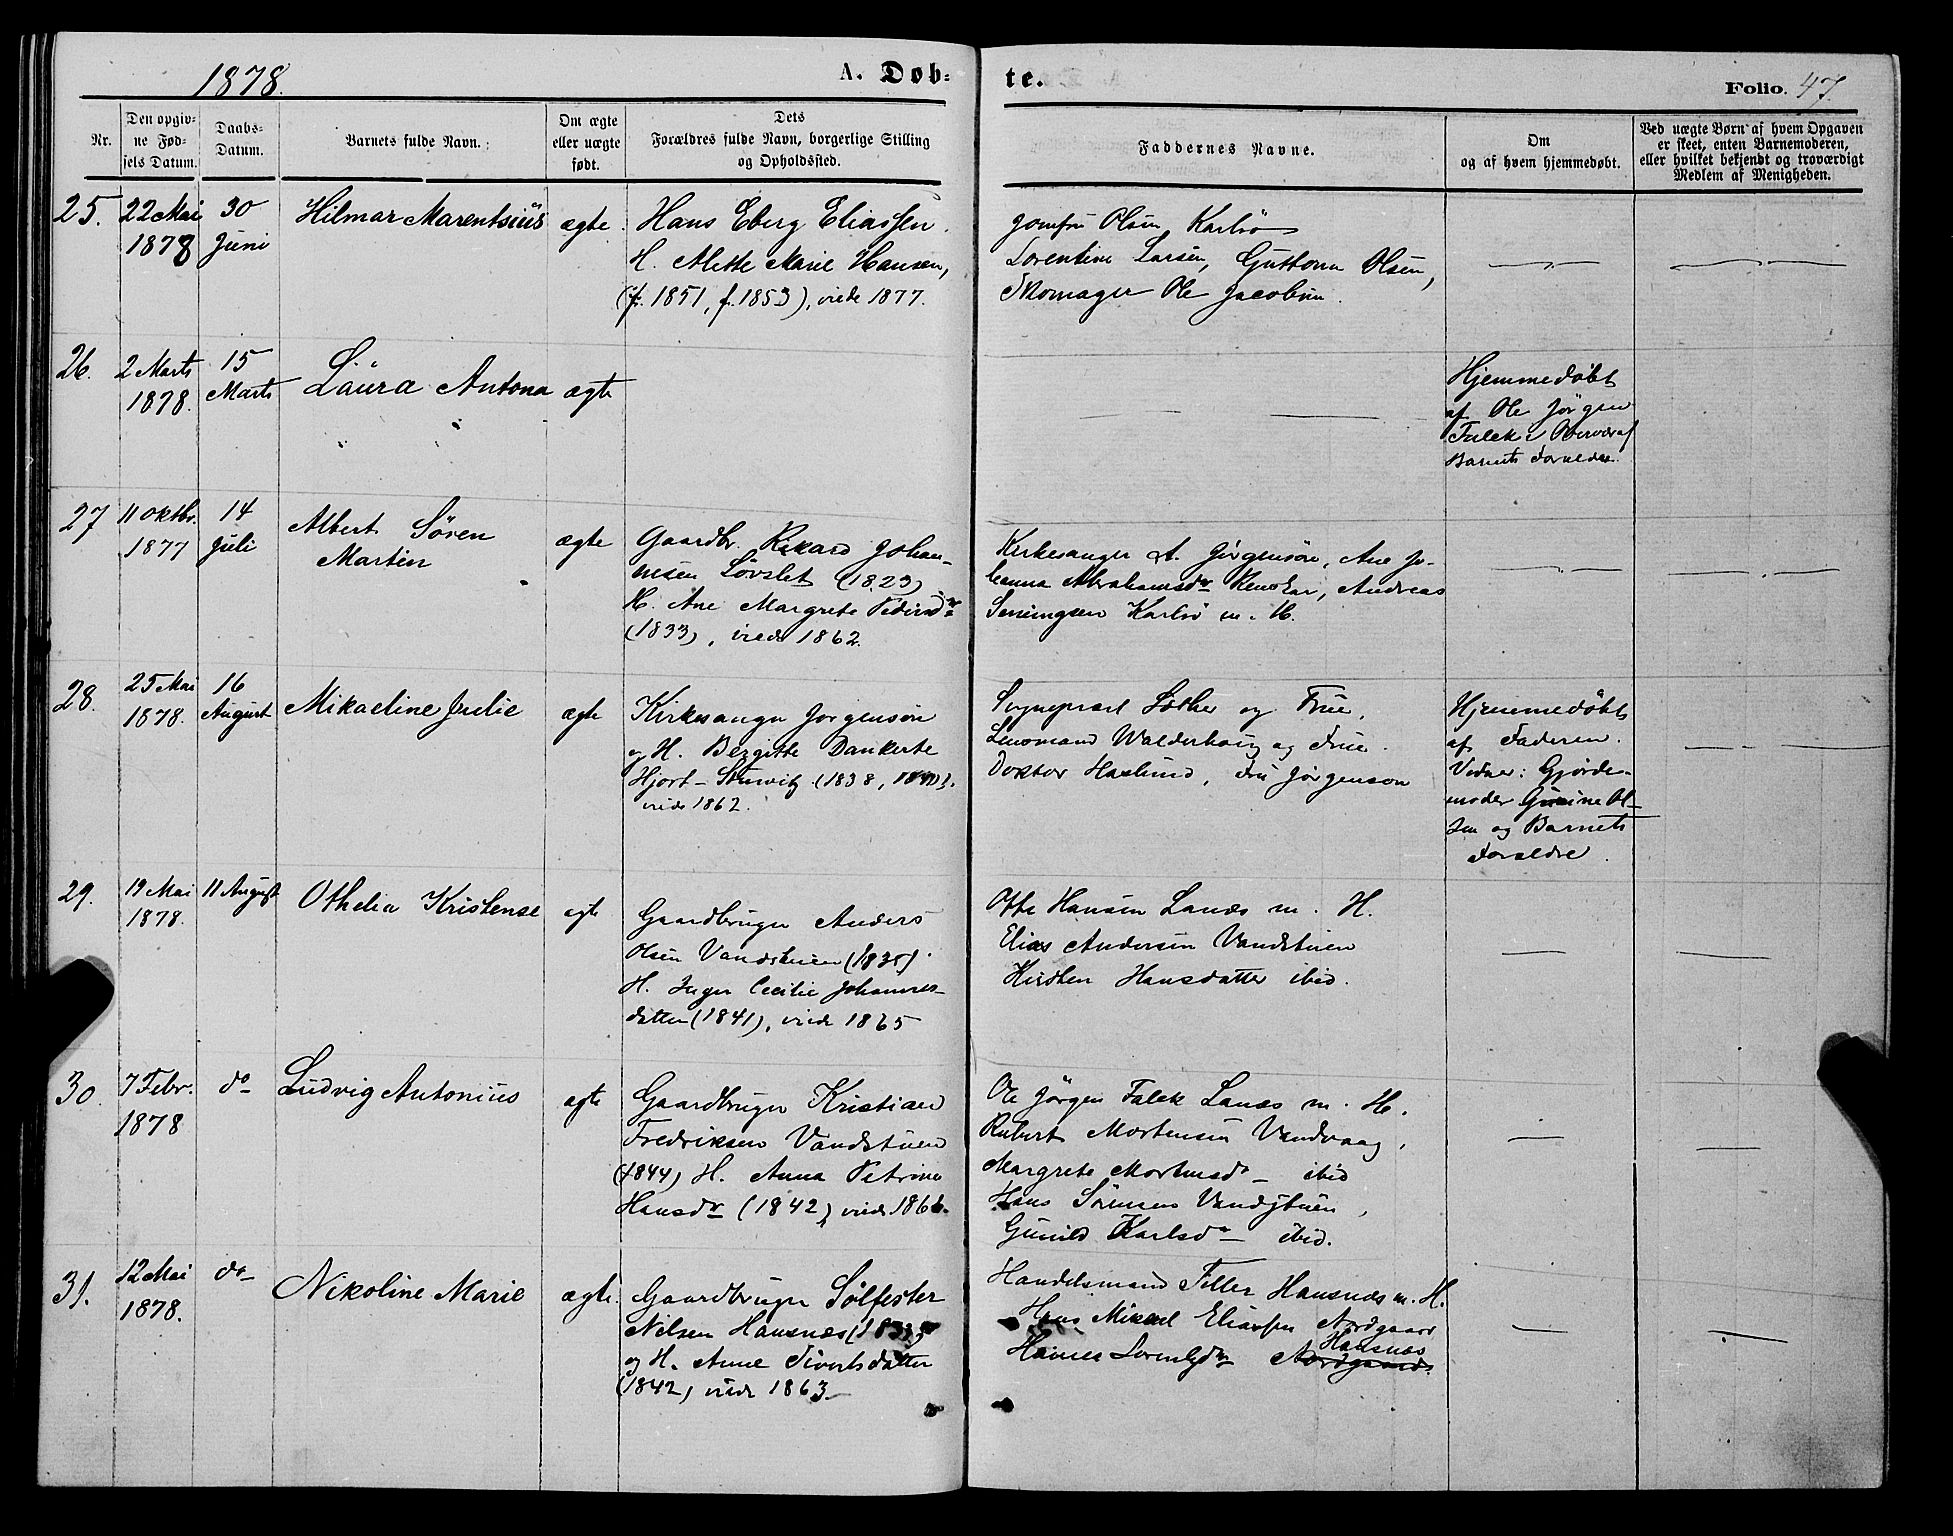 1878.
A. Døb-
te.
Folio. 47.
Nr.
Den opgiv-
ne Fød-
sels Datum.
Daabs-
Datum.
Barnets fulde Navn.
Om ægte
eller uægte
født.
Dets
Forældres fulde Navn, borgerlige Stilling
og Opholdssted.
Faddernes Navne.
Om
og af hvem hjemmedøbt.
Ved uægte Børn af hvem Opgaven
er skeet, enten Barnemoderen,
eller hvilket bekjendt og troværdigt
Medlem af Menigheden.
25.
22 Mai
1878
30
Juni
Hilmar Marentsius
ægte
Hans Eberg Eliassen.
H. Alette Marie Hansen,
(f. 1851, f. 1853), viede 1877.
Jomfru Olsen Karlsø
Lorentine Larsen, Olsen,
Skomager Ole Jacobsen.
26.
2 Marts
1878.
15
Marts
Laura Antona
ægte
Hjemmedøbt
af Ole Jørgen
Falck i Overvær af
Barnets Forældre.
27
11 Oktbr.
1877
14
Juli
Albert Søren
Martin
ægte
Gaardbr. Rikard Johan-
nesen Løvslet (1823)
H. Ane Margrete Pedersdr
(1833), viede 1862.
Kirkesanger A. Jørgensøn, Ane Jo-
hanna Abrahamsdr Andreas
Karlsø m. H.
28.
25 Mai
1878.
16
August
Mikaeline Julie
ægte
Kirkesanger Jørgensøn
og H. Bergitte Dankerte
Hjort-Stuwitz (1838, 1840).
viede 1862.
Sogneprest og Frue,
Lensmand Walderhaug og Frue.
Doktor Haslund, Fru Jørgenson
Hjemmedøbt
af Faderen.
Vidner: Gjorde-
moder Ol-
sen og Barnets
Forældre.
29.
19 Mai
1878.
11 August
Othelia Kristense
ægte
Gaardbruger Anders
Olsen Vandstuen (1835)
H. Inger Cecilie Johannes-
datter (1841), viede 1865
Otto Hansen Lanæs m. H.
Elias Andersen Vandstuen
Kirsten Hansdatter ibid.
30.
7 Febr.
1878
do
Ludvig Antonius
ægte
Gaardbruger Kristian
Fredriksen Vandstuen
(1844) H. Anna Petrina
Hansdr (1842), viede 1866.
Ole Jørgen Falck Lanæs m. H.
Robert Mortensen Vandvaag,
Margrete Mortensdr ibid
Hans Sørensen Vandstuen,
Gunild Karlsdr ibid.
31.
12 Mai
1878.
do
Nikoline Marie
ægte.
Gaardbruger Sølfester
Nilsen Hansnæs (1835)
og H. Anne Sivertsdatter
(1842) viede 1863
Handelsmand Figenschou Hansnæs m. H.
Hans Mikael Eliassen Nordgaard
Hansnæs
Hanna Lorentsdr Nordgaard.